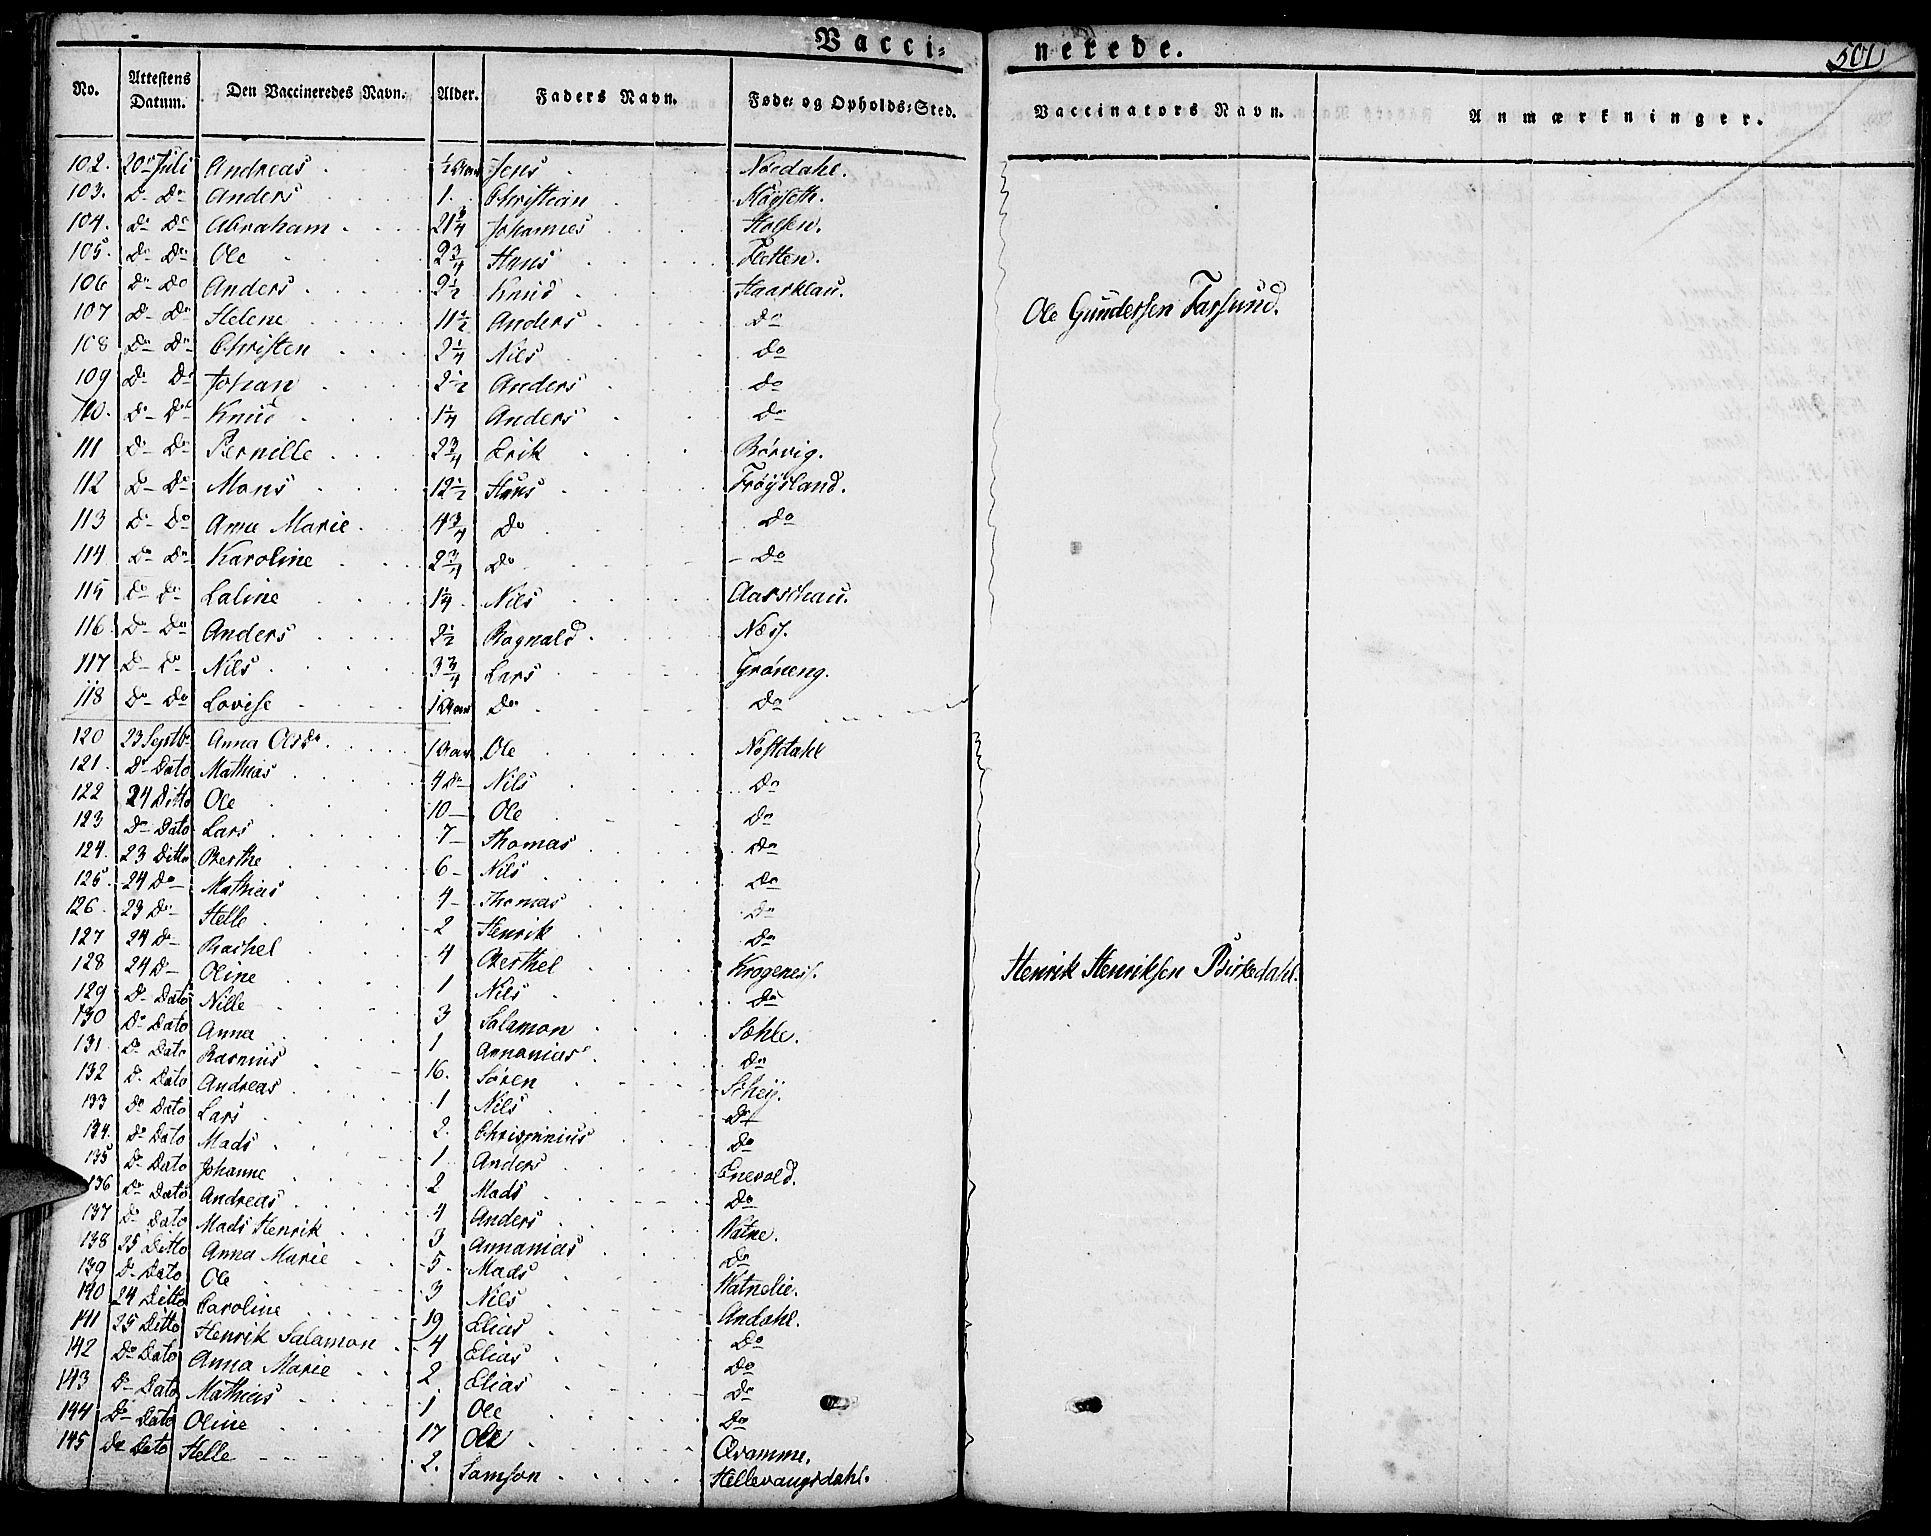 Vacci= nerede. 501
No. Attestens Datum. Den Vaccineredes Navn. Alder. Faders Navn. Føde= og Opholds=Sted. Vaccinators Navn. Anmærkninger.
102. 20de Juli Andreas ½ Aar Jens Nordahl.
103. Do Do Anders 1. Christian
104. Do Do Abraham Johannes
105. Do Do Ole 2¾ Hans Fletten.
106 Do Do Anders 2½ Knud Haarklau.
107 Do Do Helene 11½ Anders Do
108 Do Do Christen 2¼ Nils Do
109 Do Do Johan 2½ Anders Do
110. Do Do Knud 1¼ Anders Do
111 Do Do Pernille 2¾ Erik Børvig.
112 Do Do Mons 12½ Hans Frøysland.
113 Do Do Anne Marie 4¾ Do Do
114 Do Do Karoline 2¾ Do Do
115 Do Do Laline 1¼ Nils Aarschau.
116 Do Do Anders 2½ Ragnald Næss.
117 Do Do Nils 3¾ Lars Grøneng.
118 Do Do Lovise 1 Aar Do Do
Ole Gundersen Farsund.
120 23 Septbr Anna Olsdr. 1 Aar Ole Nøstdahl
121. Do Dato Mathias 4 Do Nils Do
122 24 Ditto Ole 10 Ole Do
123 Do Dato Lars 7 Thomas Do
124. 23 Ditto Berthe 6 Nils Do
125. 24 Do Mathias 4 Thomas Do
126. 23 Do Helle 2 Henrik Do
127 24 Do Rachel 4 Berthel Krogenes.
128 24 Do Oline 1 Nils Do
129 Do Dato Nille 3 Salamon Sæhle.
130 Do Dato Anna 1 Annanias Do
131. Do Dato Rasmus 16. Søren
132 Do Dato Andreas 1 Nils Do
133 Do Dato Lars 2. Chrispinius Do
134. Do Dato Mads 1 Anders Enevold.
135 Do Dato Johanne 2 Mads Do
136 Do Dato Andreas 4 Anders Natne.
137 Do Dato Mads Henrik 3 Annanias Do
138 25 Ditto Anna Marie 5 Mads Natnelie.
139 Do Dato Ole 3 Nils Andahl.
140 24 Ditto Caroline 19 Elias Do
141 25 Ditto Henrik Salamon 4 Elias Do
142 Do Dato Anna Marie 2 Elias Do
143 Do Dato Mathias 1 Ole Do
144 Do Dato Oline 17 Ole Qvamme.
145 Do Dato Helle 2. Samson Hellevangsdahl.
Henrik Henriksen Birkedahl.